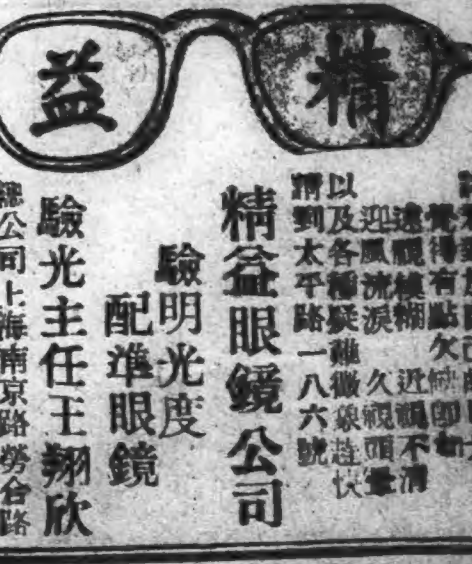 精益
覺得有點欠 即如
遠視模糊 近視不清
迎風流淚 久視頭暈
以及各種疑難徵象趕快
請到太平路一八六號
精益眼鏡公司
驗明光度
配準眼鏡
驗光主任王翔欣
總公司上海南京路勞合路